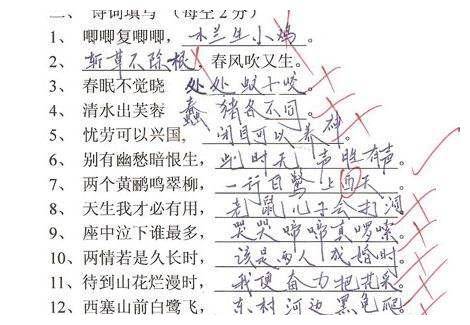 二、诗词填写（每空2分）
1、唧唧复唧唧，木兰生小鸡。
2、斩草不除根，春风吹又生。
3、春眠不觉晓 处处蚊子咬
4、清水出芙蓉 蠢猪各不同。
5、忧劳可以兴国，闭目可以养神。
6、别有幽愁暗恨生，此时无声胜有声。
7、两个黄鹂鸣翠柳，一行白鹭上西天
8、天生我才必有用，老鼠儿子会打洞
9、座中泣下谁最多，哭哭啼啼真啰嗦。
10、两情若是久长时，该是两人成婚时。
11、待到山花烂漫时，我便奋力把花采。
12、西塞山前白鹭飞，东村河边黑龟爬。